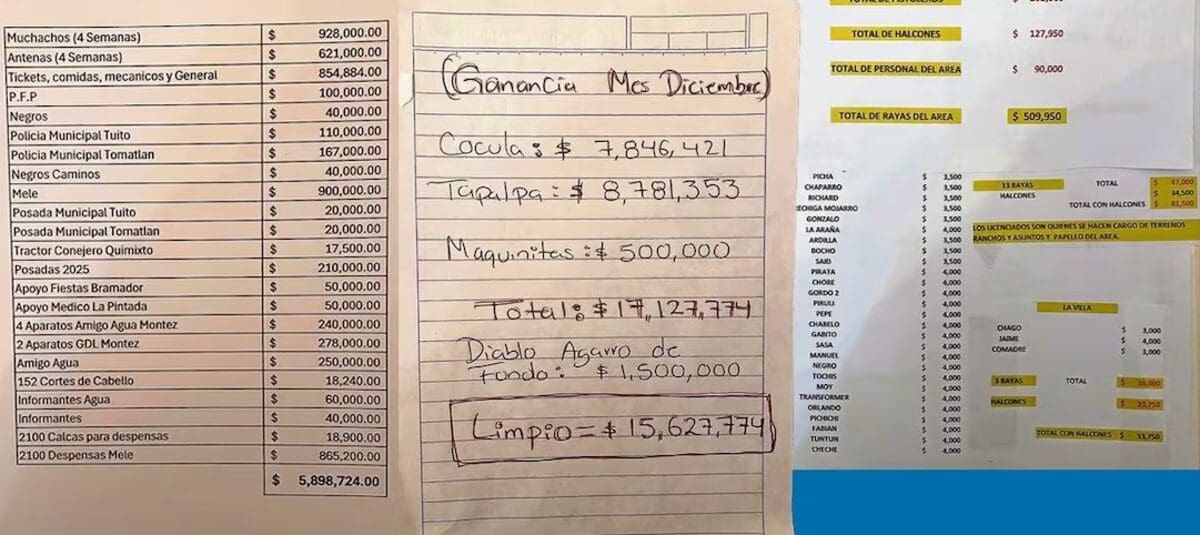 Muchachos (4 Semanas) $ 928,000.00
Antenas (4 Semanas) $ 621,000.00
Tickets, comidas, mecanicos y General $ 854,884.00
P.F.P $ 100,000.00
Negros $ 40,000.00
Policia Municipal Tuito $ 110,000.00
Policia Municipal Tomatlan $ 167,000.00
Negros Caminos $ 40,000.00
Mele $ 900,000.00
Posada Municipal Tuito $ 20,000.00
Posada Municipal Tomatlan $ 20,000.00
Tractor Conejero Quimixto $ 17,500.00
Posadas 2025 $ 210,000.00
Apoyo Fiestas Bramador $ 50,000.00
Apoyo Medico La Pintada $ 50,000.00
4 Aparatos Amigo Agua Montez $ 240,000.00
2 Aparatos GDL Montez $ 278,000.00
Amigo Agua $ 250,000.00
152 Cortes de Cabello $ 18,240.00
Informantes Agua $ 60,000.00
Informantes $ 40,000.00
2100 Calcas para despensas $ 18,900.00
2100 Despensas Mele $ 865,200.00
$ 5,898,724.00
(Ganancia Mes Diciembre)
Cocula: $ 7,846,421
Tapalpa: $ 8,781,353
Maquinitas: $ 500,000
Total: $ 17,127,774
Diablo Agarro de
fondo: $ 1,500,000
Limpio = $ 15,627,774
TOTAL DE PISTOLEROS $
TOTAL DE HALCONES $ 127,950
TOTAL DE PERSONAL DEL AREA $ 90,000
TOTAL DE RAYAS DEL AREA $ 509,950
PICHA $ 3,500
CHAPARRO $ 3,500
RICHARD $ 3,500
ECHIGA MOJARRO $ 3,500
GONZALO $ 3,500
LA ARAÑA $ 4,000
ARDILLA $ 3,500
BOCHO $ 3,500
SAID $ 3,500
PIRATA $ 4,000
CHORE $ 4,000
GORDO 2 $ 4,000
PIRULI $ 4,000
PEPE $ 4,000
CHABELO $ 4,000
GABITO $ 4,000
SASA $ 4,000
MANUEL $ 4,000
NEGRO $ 4,000
TOCHIS $ 4,000
MOY $ 4,000
TRANSFORMER $ 4,000
ORLANDO $ 4,000
PICHICHI $ 4,000
FABIAN $ 4,000
TUNTUN $ 4,000
CHECHE $ 4,000
13 RAYAS TOTAL $ 47,000
HALCONES $ 34,500
TOTAL CON HALCONES $ 81,500
LOS LICENCIADOS SON QUIENES SE HACEN CARGO DE TERRENOS
RANCHOS Y ASUNTOS Y PAPELEO DEL AREA.
LA VILLA
CHAGO $ 3,000
JAIME $ 4,000
COMADRE $ 3,000
3 RAYAS TOTAL $ 10,000
HALCONES $ 23,750
TOTAL CON HALCONES $ 33,750